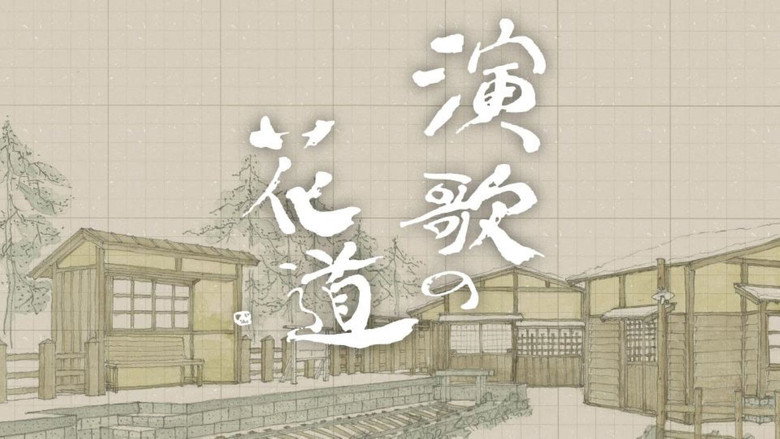 演歌の
花道